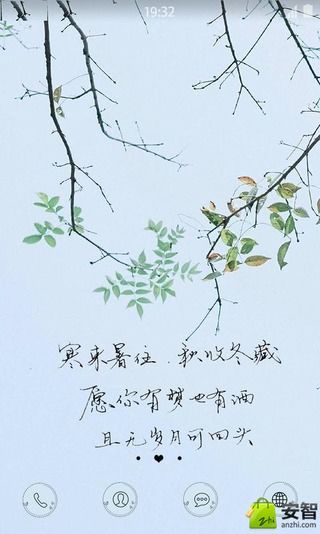 19:32
寒来暑往.秋收冬藏
愿你有梦也有酒
且无岁月可回头
安智
anzhi.com